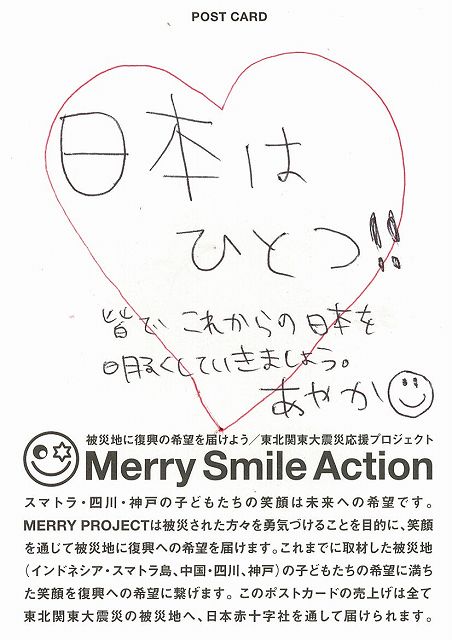 POST CARD
日本は
ひとつ!!
皆で これからの日本を
明るくしていきましょう。
あやか
被災地に復興の希望を届けよう／東北関東大震災応援プロジェクト
Merry Smile Action
スマトラ・四川・神戸の子どもたちの笑顔は未来への希望です。
MERRY PROJECTは被災された方々を勇気づけることを目的に、笑顔
を通じて被災地に復興への希望を届けます。これまでに取材した被災地
（インドネシア・スマトラ島、中国・四川、神戸）の子どもたちの希望に満ち
た笑顔を復興への希望に繋げます。このポストカードの売上げは全て
東北関東大震災の被災地へ、日本赤十字社を通して届けられます。